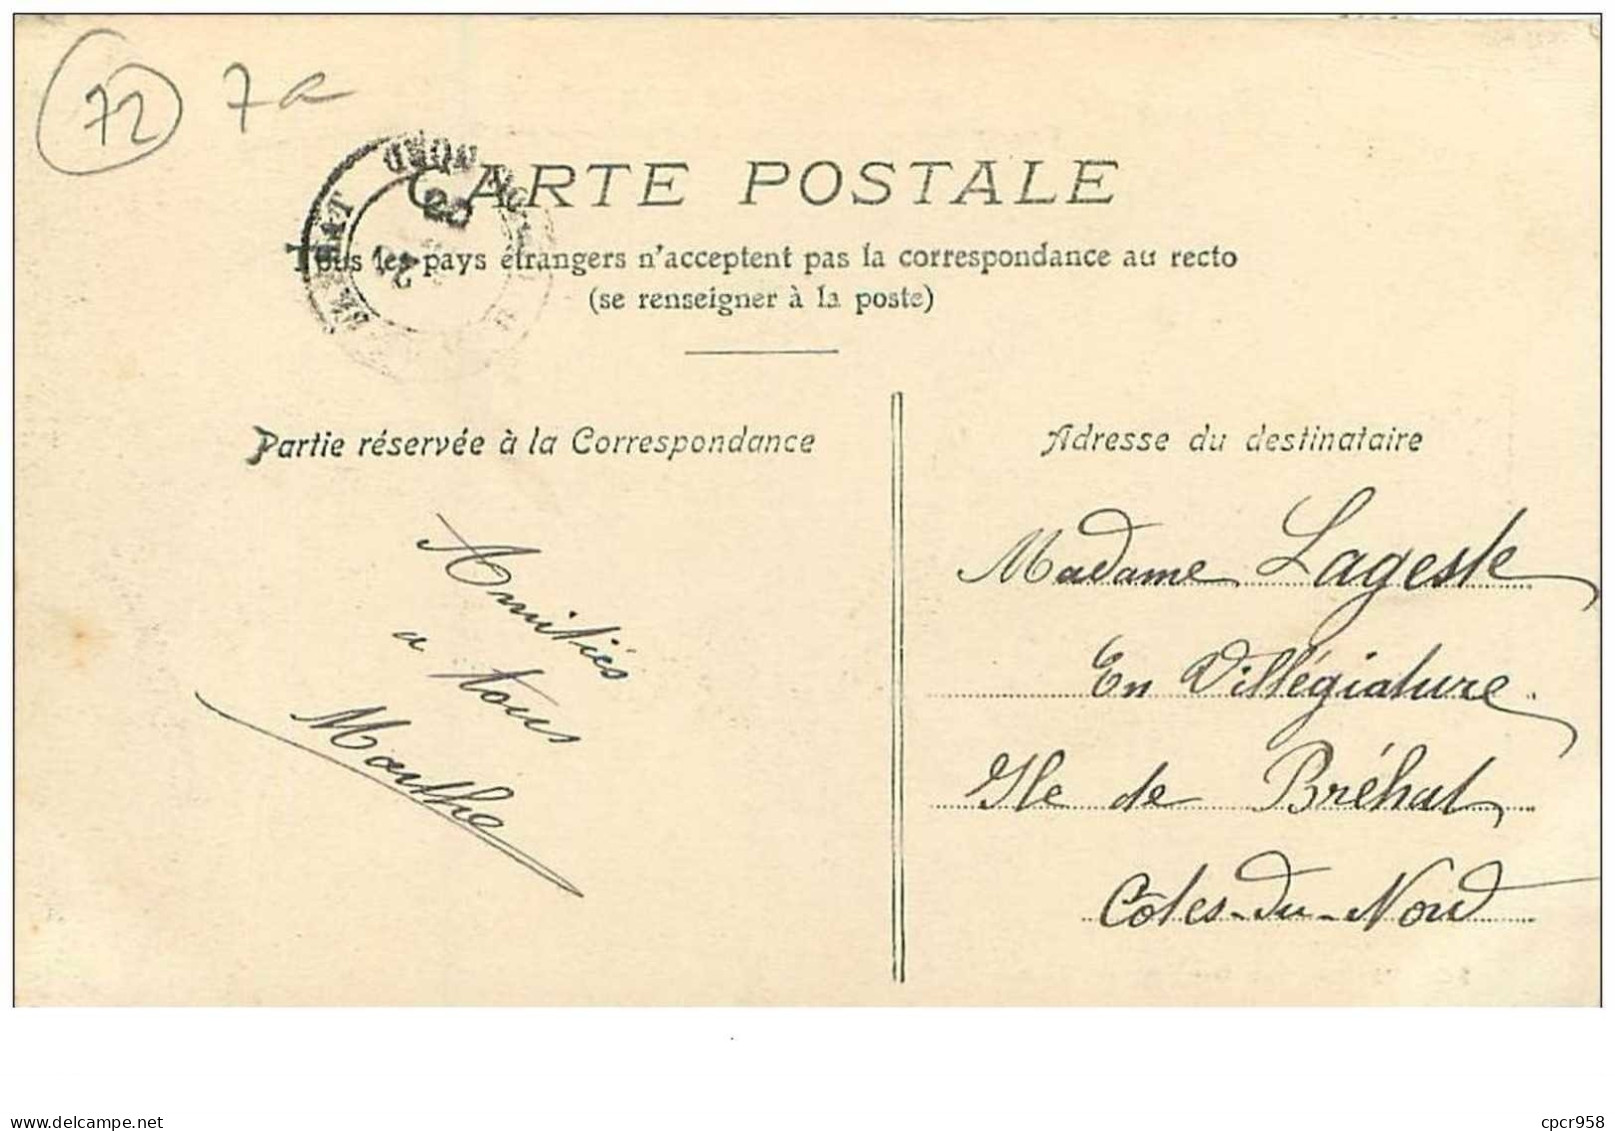 72 7a
CARTE POSTALE
Tous les pays étrangers n'acceptent pas la correspondance au recto
(se renseigner à la poste)
Partie réservée à la Correspondance
Adresse du destinataire
Amitiés
a tous
Marthe
Madame Lageste
En Villégiature
Ile de Bréhat
Côtes-du-Nord
cpcr958